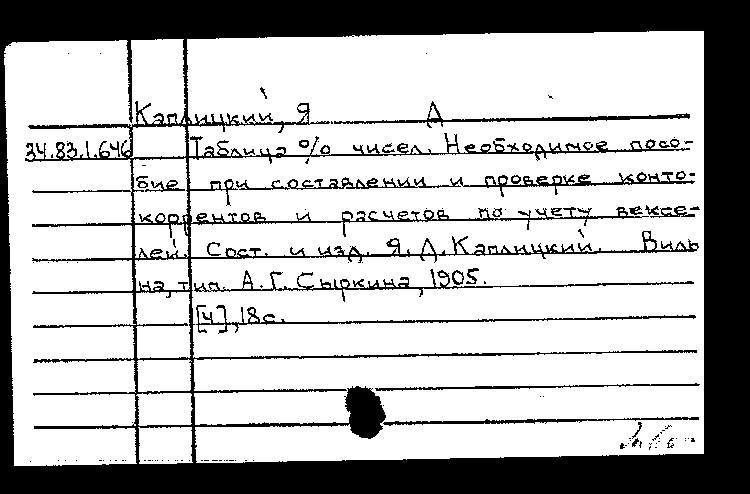 Каплицкий, Я Д
34.83.1.646 Таблица % чисел. Необходимое посо-
бие при составлении и проверке конто-
коррентов и расчетов по учету вексе-
лей. Сост. и изд. Я. Д. Каплицкий. Виль
на, тип. А. Г. Сыркина, 1905.
[4], 18с.